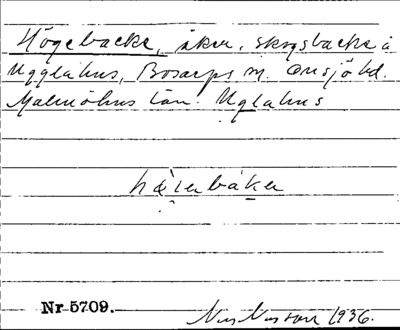 Högebacke, åker, skogsbacke å
Ugglahus, Bosarps sn. Onsjö hd.
Malmöhus län. Uglahus
hæ̀ienbákȩn
Nr 5709.
Nils Nilsson 1936.